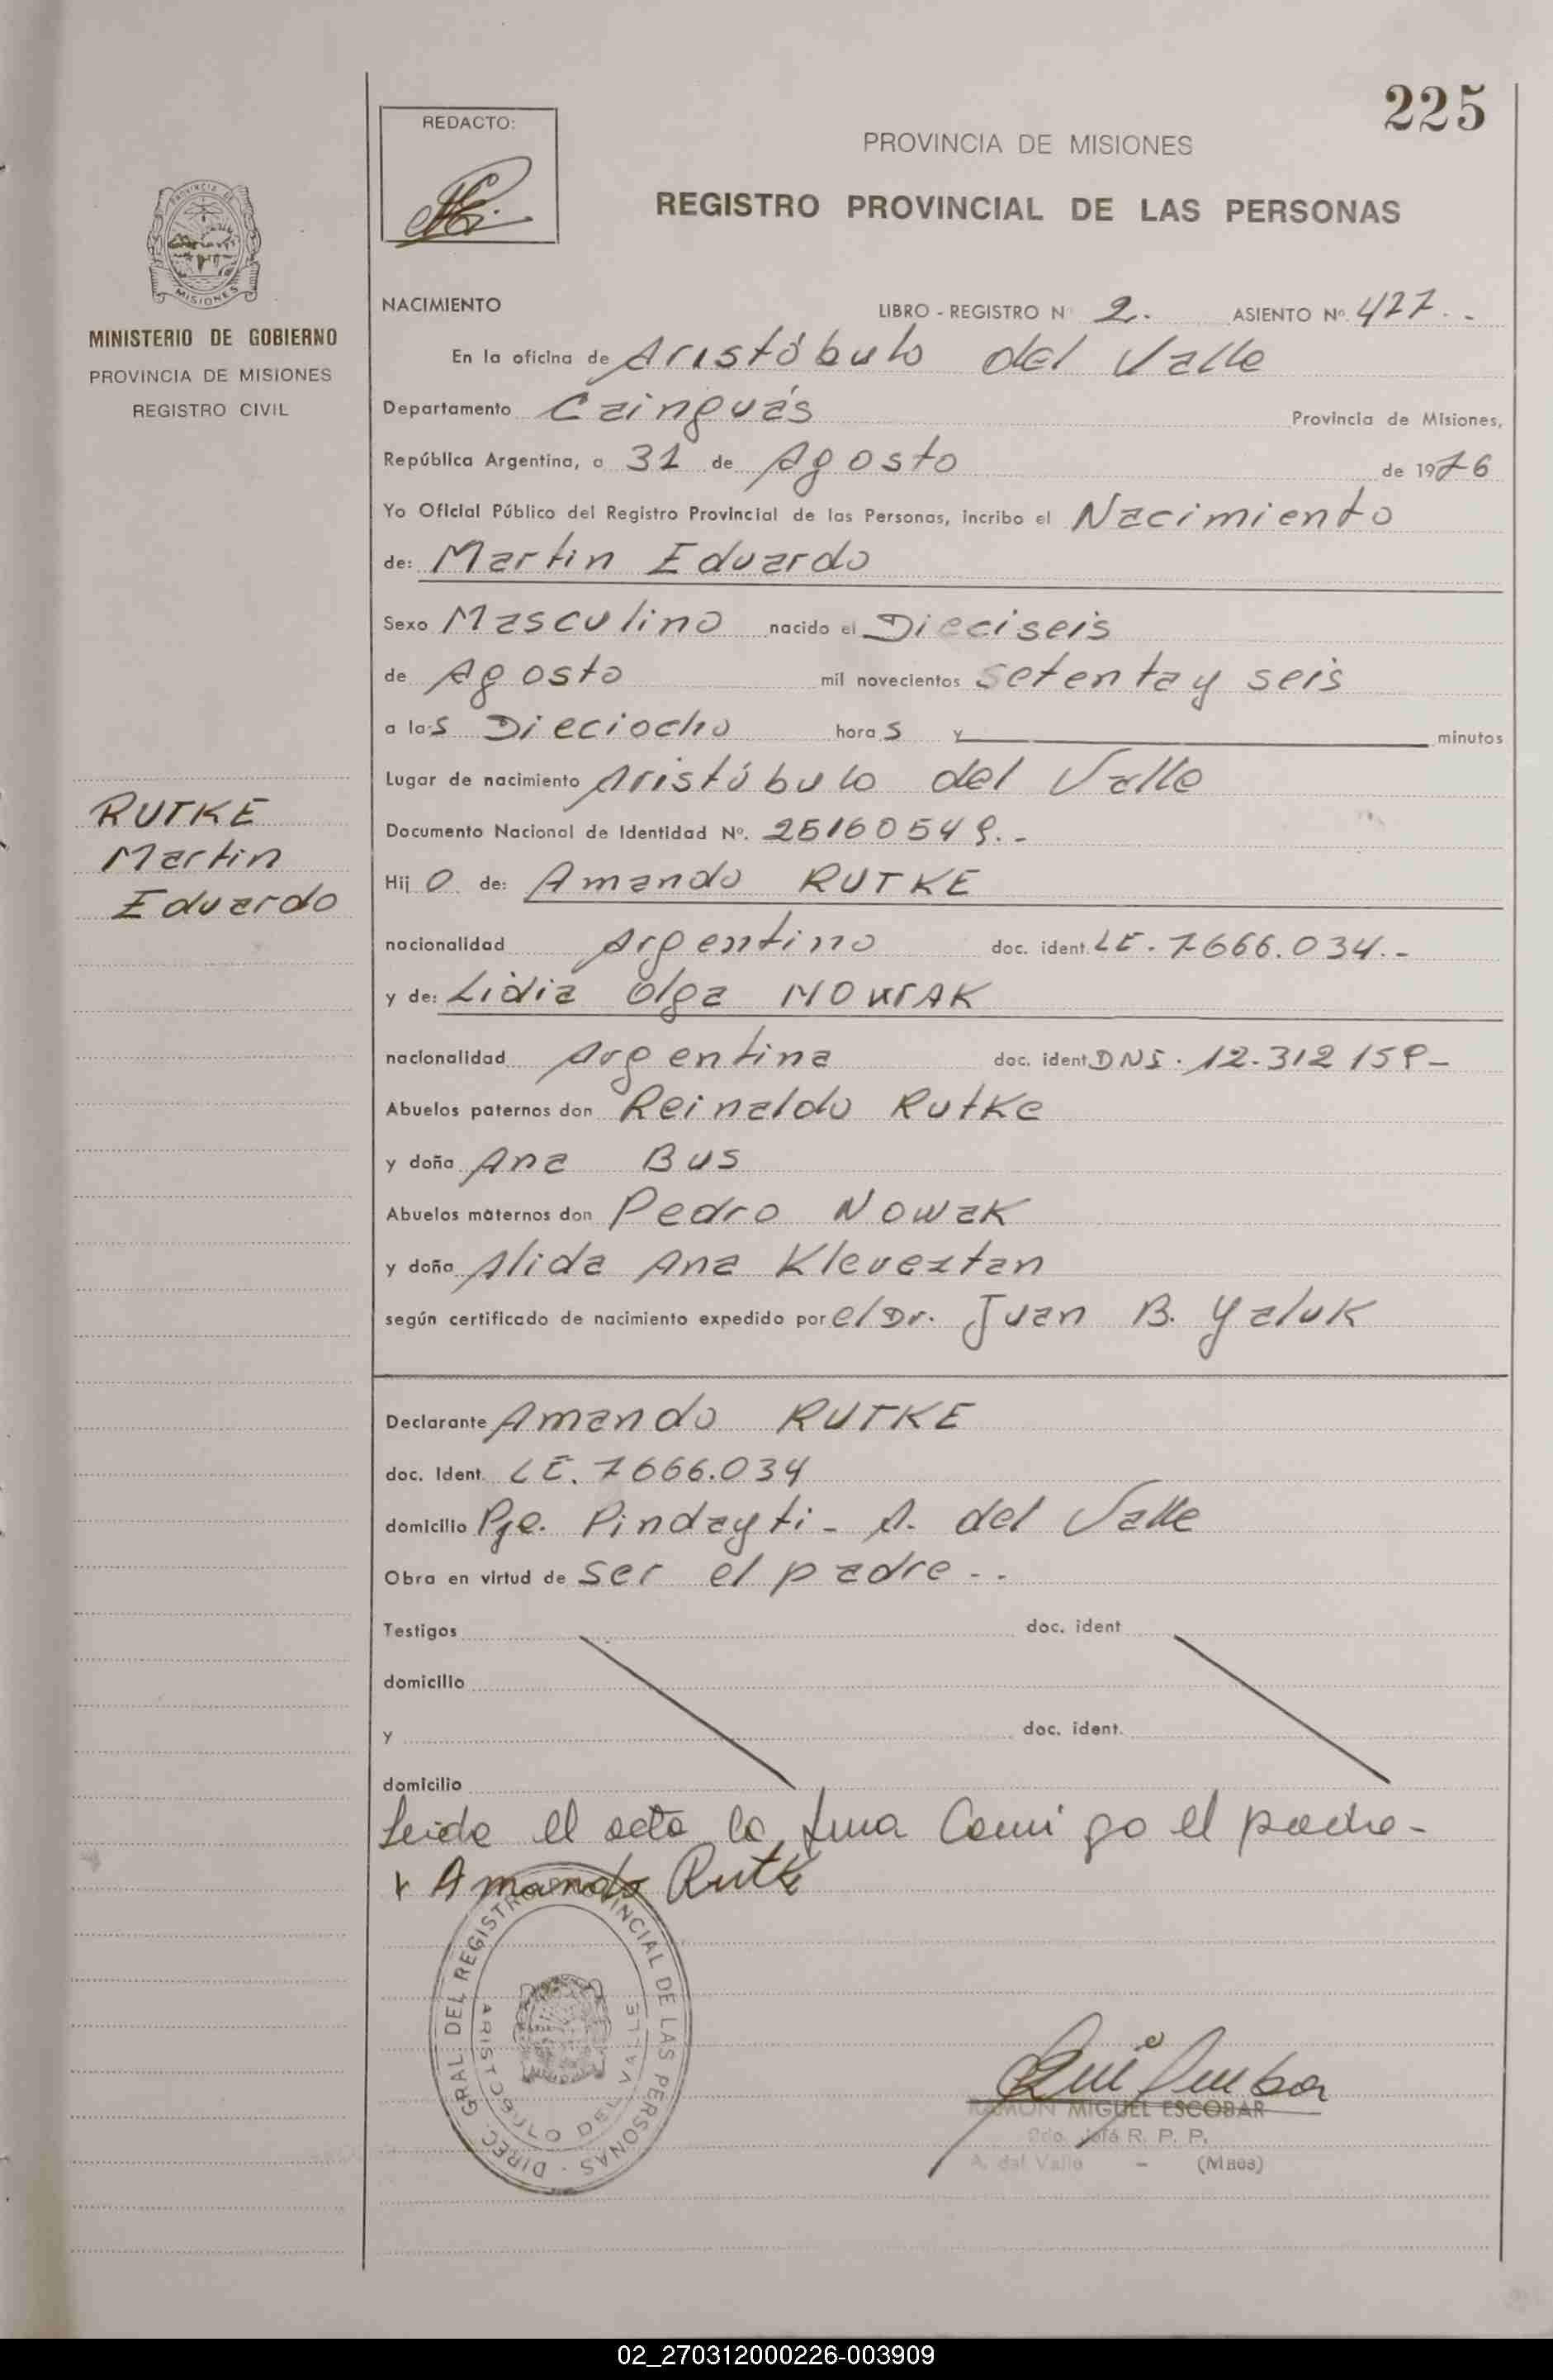 225
REDACTO:
PROVINCIA DE MISIONES
REGISTRO PROVINCIAL DE LAS PERSONAS
PROVINCIA DE
MISIONES
MINISTERIO DE GOBIERNO
PROVINCIA DE MISIONES
REGISTRO CIVIL
NACIMIENTO LIBRO - REGISTRO Nº 2. ASIENTO Nº. 427..
En la oficina de Aristóbulo del Valle
Departamento Cainguás Provincia de Misiones,
República Argentina, a 31 de Agosto de 1976
Yo Oficial Público del Registro Provincial de las Personas, incribo el Nacimiento
de: Martin Eduardo
Sexo Masculino nacido el Dieciseis
de Agosto mil novecientos setenta y seis
a las Dieciocho horas y minutos
Lugar de nacimiento Aristóbulo del Valle
Documento Nacional de Identidad Nº. 25160549.-
RUTKE
Martin
Eduardo
Hijo de: Amando RUTKE
nacionalidad Argentino doc. ident. LE. 7666.034.-
y de: Lidia Olga NOWAK
nacionalidad Argentina doc. ident DNI. 12.312 159-
Abuelos paternos don Reinaldo Rutke
y doña Ana Bus
Abuelos maternos don Pedro Nowak
y doña Alida Ana
según certificado de nacimiento expedido por el Dr. Juan B. Yaluk
Declarante Amando RUTKE
doc. Ident. LE. 7666.034
domicilio Pje. Pindayti - A. del Valle
Obra en virtud de ser el padre..
Testigos doc. ident
domicilio
y doc. ident.
domicilio
Leida el acta la firma Conmigo el padre-
Amando Rutke
DIREC. GRAL. DEL REGISTRO PROVINCIAL DE LAS PERSONAS
ARISTOBULO DEL VALLE
RAMON MIGUEL ESCOBAR
Jefe R. P. P.
A. del Valle - (Mnes)
02_270312000226-003909